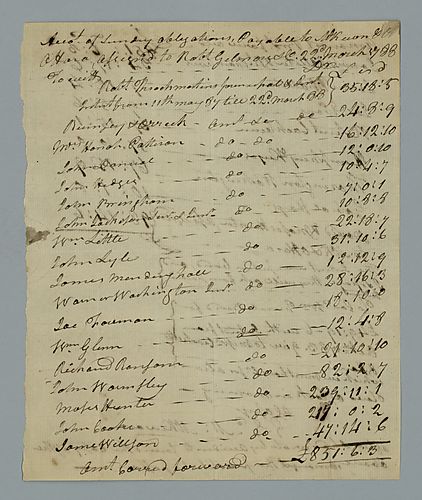 Acct of Sundry obligations, Payable to
assigned to Robt Gilmor & Co 22d March 1788
To wit
Robt Throckmortin principal &
Intrst from 11th may 87 till 22d March 88 35:18:5
Rumsey & Amt do 24:3:9
Mrs Sarah do do 16:12:10
John Daniel do 12:0:10
John Hedges do 10:4:7
John Bringham do 7:0:1
John do 10:8:8
Wm Little do 22:18:7
John Lyle do 31:10:6
James Mendenhall do 12:12:9
Warner Washington do 28:16:3
Jac do 18:10:0
Wm Glenn do 12:4:8
Richard Ransom do 21:10:10
John Wormley do 82:2:7
Moses Hunter do 239:11:1
John Cooke do 217:0:2
James Willson do 47:14:6
Amt Carred forward £831:6:3